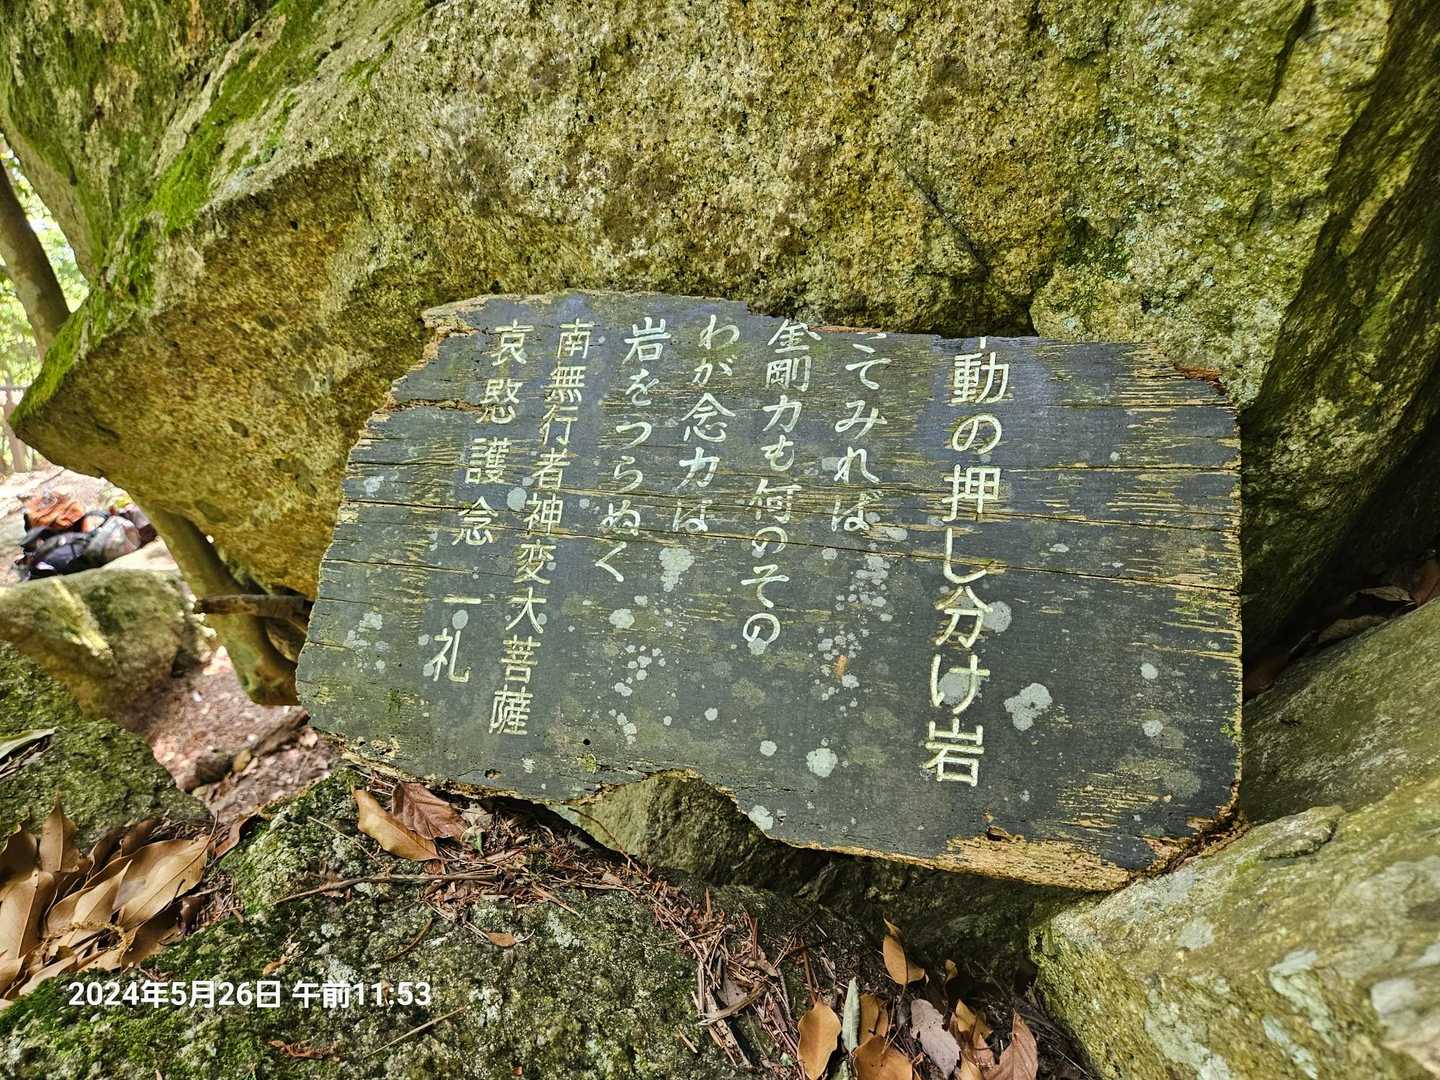 動の押し分け岩
てみれば
金剛力も何のその
わが念力は
岩をつらぬく
南無行者神変大菩薩
哀愍護念 一礼
2024年5月26日 午前11:53